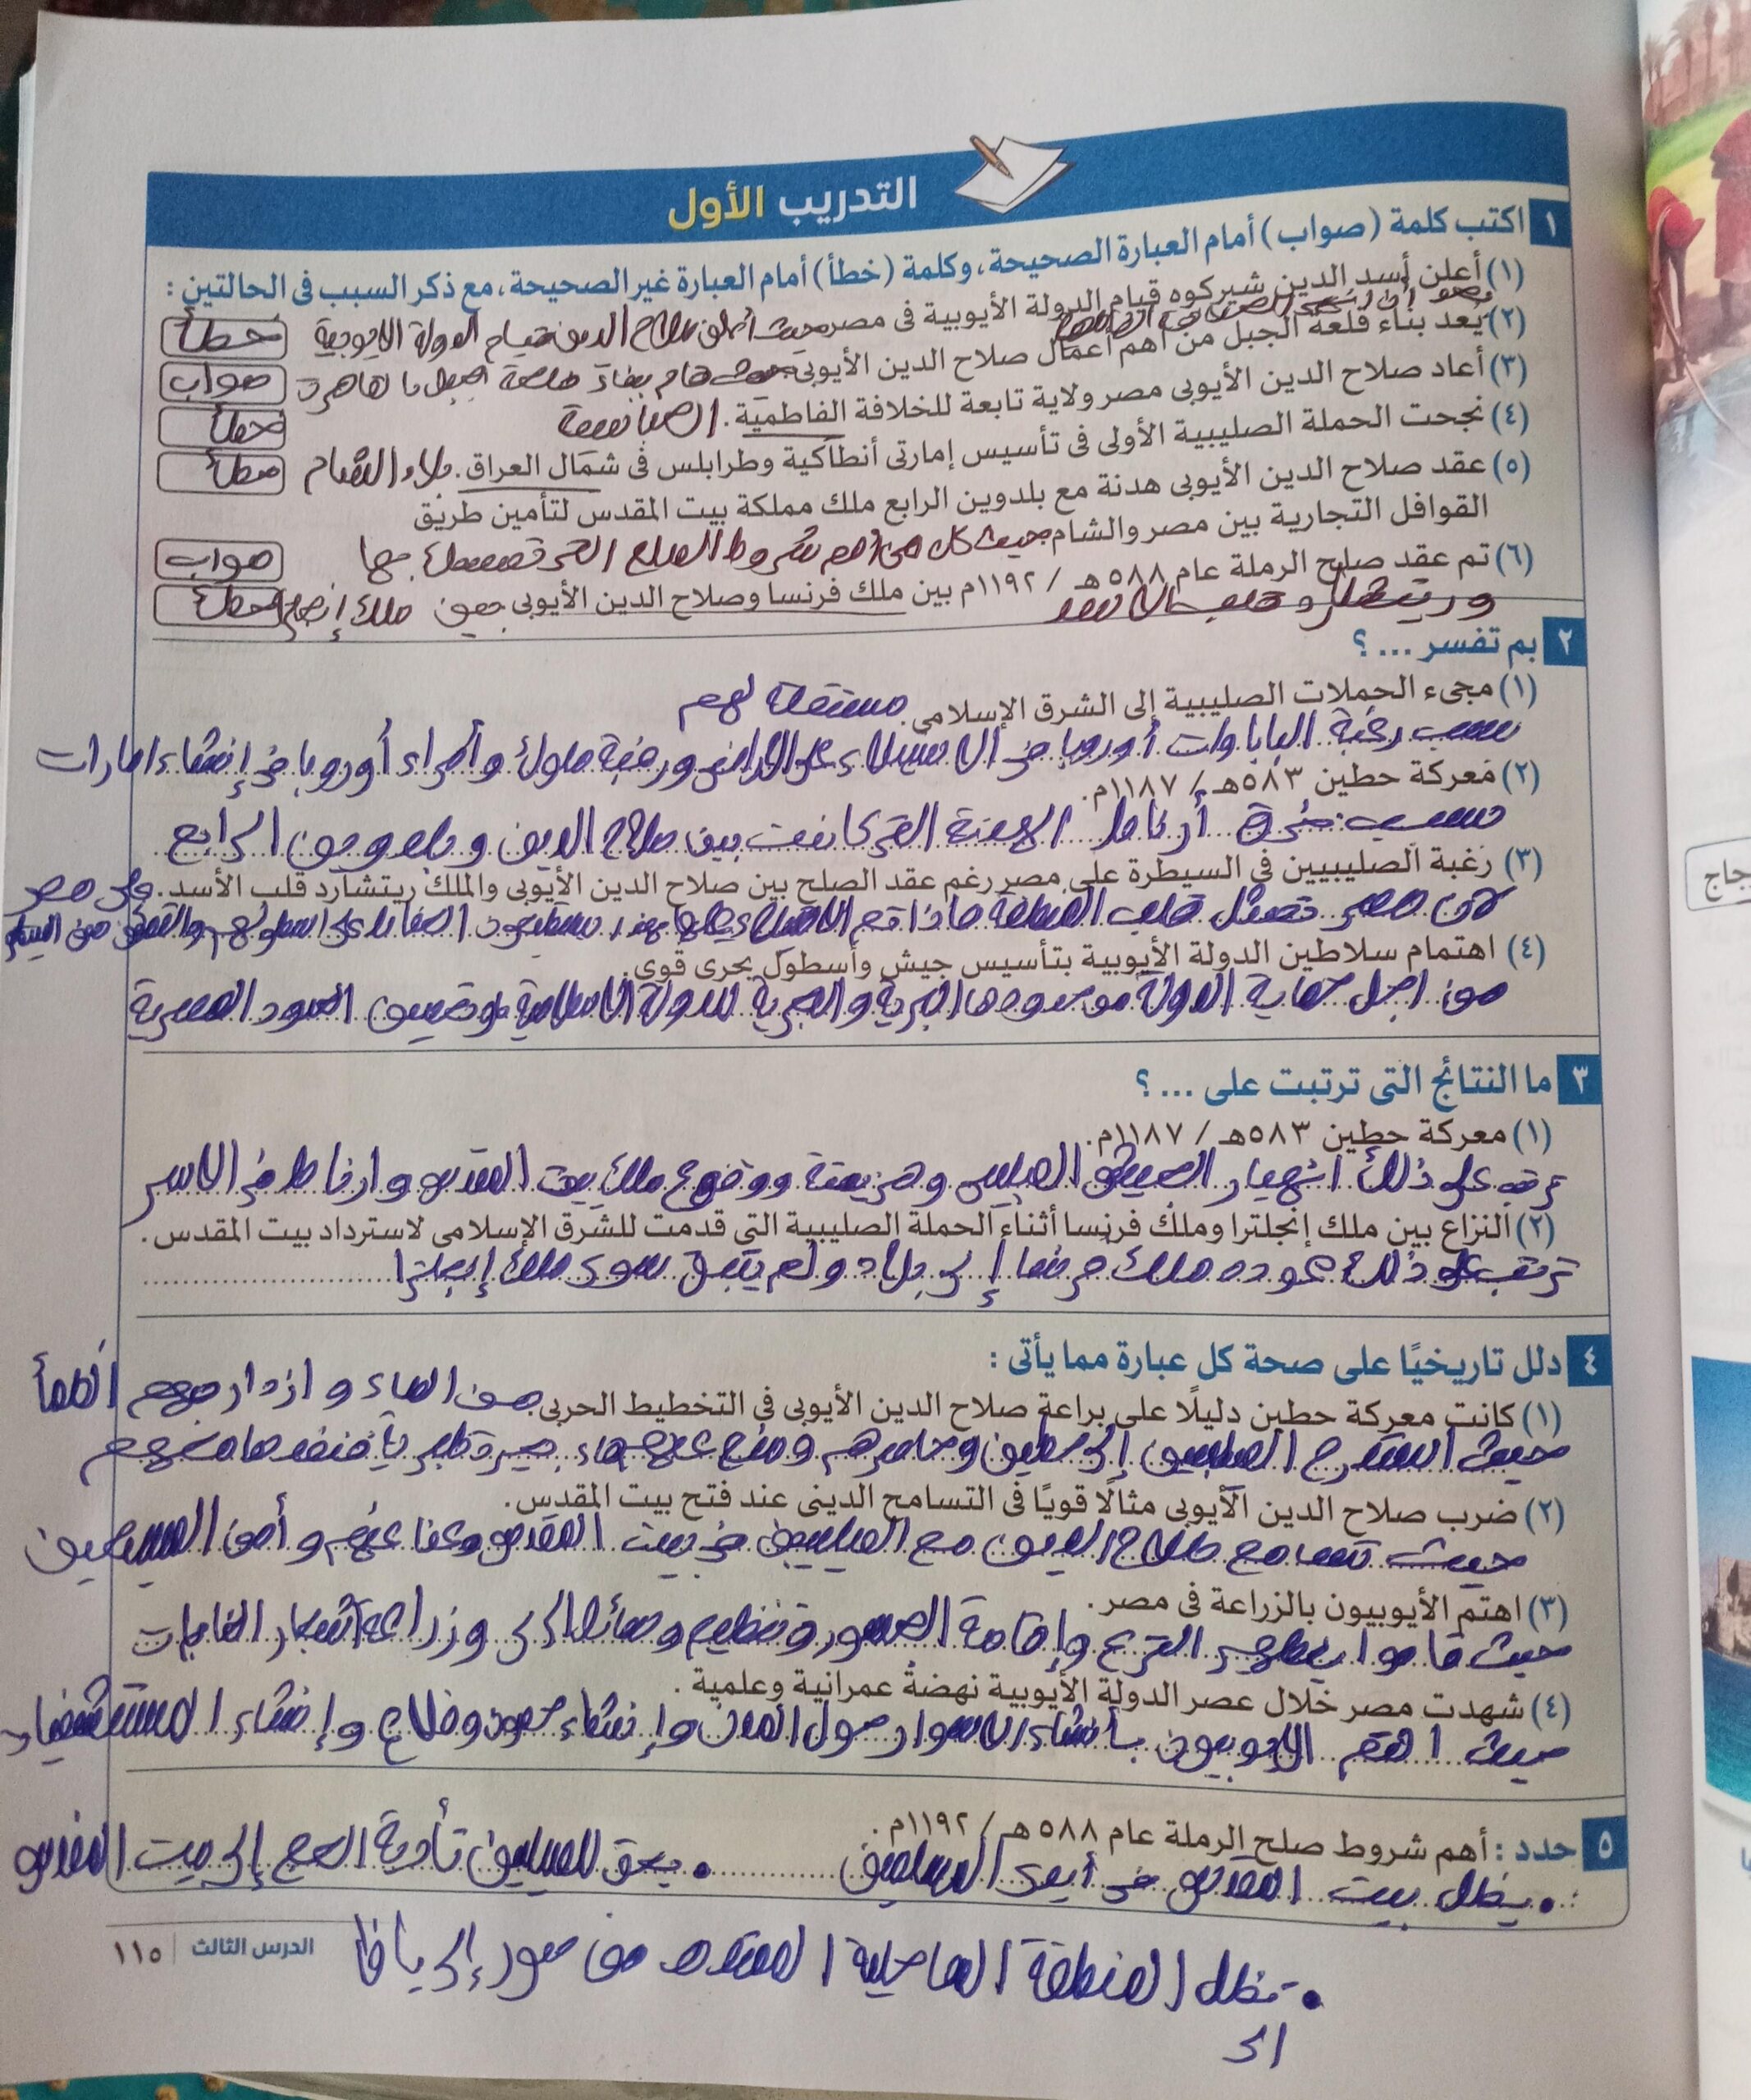 التدريب الأول
١ اكتب كلمة (صواب) أمام العبارة الصحيحة، وكلمة (خطأ) أمام العبارة غير الصحيحة، مع ذكر السبب فى الحالتين :
(١) أعلن أسد الدين شيركوه قيام الدولة الأيوبية فى مصر حيث أعلن صلاح الدين قيام الدولة الايوبية خطأ
(٢) يُعد بناء قلعة الجبل من أهم أعمال صلاح الدين الأيوبى حيث قام ببناء قلعة الجبل بالقاهرة صواب
(٣) أعاد صلاح الدين الأيوبى مصر ولاية تابعة للخلافة الفاطمية. العباسية خطأ
(٤) نجحت الحملة الصليبية الأولى فى تأسيس إمارتى أنطاكية وطرابلس فى شمال العراق. بلاد الشام خطأ
(٥) عقد صلاح الدين الأيوبى هدنة مع بلدوين الرابع ملك مملكة بيت المقدس لتأمين طريق
القوافل التجارية بين مصر والشام حيث كان من أهم شروط الصلح التى بها صواب
(٦) تم عقد صلح الرملة عام ٥٨٨هـ / ١١٩٢م بين ملك فرنسا وصلاح الدين الأيوبى بين ملك إنجلترا خطأ
ريتشارد قلب الأسد
٢ بم تفسر ... ؟
(١) مجىء الحملات الصليبية إلى الشرق الإسلامى. مستقلة لهم
بسبب رغبة البابا وات أوروبا فى الاستيلاء على الأراضى ورغبة ملوك وأمراء أوروبا فى إنشاء امارات
(٢) معركة حطين ٥٨٣هـ / ١١٨٧م.
بسبب خرق أرناط الهدنة التى كانت بين صلاح الدين وبلدوين الرابع
(٣) رغبة الصليبيين فى السيطرة على مصر رغم عقد الصلح بين صلاح الدين الأيوبى والملك ريتشارد قلب الأسد. على مصر
لأن مصر تمثل قلب المنطقة فاذا تم الاستيلاء عليها
(٤) اهتمام سلاطين الدولة الأيوبية بتأسيس جيش وأسطول بحرى قوى.
من اجل حماية الدولة وحدودها البرية والبحرية للدولة
٣ ما النتائج التى ترتبت على ... ؟
(١) معركة حطين ٥٨٣هـ / ١١٨٧م.
ترتب على ذلك انهيار الجيش الصليبى وهزيمته ووقوع ملك بيت المقدس وارناط فى الاسر
(٢) النزاع بين ملك إنجلترا وملك فرنسا أثناء الحملة الصليبية التى قدمت للشرق الإسلامى لاسترداد بيت المقدس.
ترتب على ذلك عوده ملك فرنسا إلى بلاده ولم يتبق سوى ملك إنجلترا
٤ دلل تاريخيًا على صحة كل عبارة مما يأتى :
(١) كانت معركة حطين دليلًا على براعة صلاح الدين الأيوبى فى التخطيط الحربى. من الماء و ازداد بهم الظمأ
حيث استدرج الصليبيين إلى حطين وحاصرهم ومنع عنهم ماء بحيرة طبرية فنفد ما معهم
(٢) ضرب صلاح الدين الأيوبى مثالًا قويًا فى التسامح الدينى عند فتح بيت المقدس.
حيث تسامح صلاح الدين مع الصليبين فى بيت المقدس وعفا عنهم و أمن المسيحيين
(٣) اهتم الأيوبيون بالزراعة فى مصر.
حيث قاموا بتطهير الترع وإقامة الجسور وتنظيم وسائل الرى وزراعة أشجار الغابات
(٤) شهدت مصر خلال عصر الدولة الأيوبية نهضةً عمرانية وعلمية.
حيث اهتم الايوبيون بإنشاء الاسوار حول المدن وإنشاء حصون وقلاع وإنشاء المستشفيات
٥ حدد : أهم شروط صلح الرملة عام ٥٨٨هـ / ١١٩٢م.
• يظل بيت المقدس فى أيدى المسلمين • يحق للصليبين تأدية الحج إلى بيت المقدس
• تظل المنطقة الساحلية الممتدة من صور إلى يافا
الدرس الثالث | ١١٥